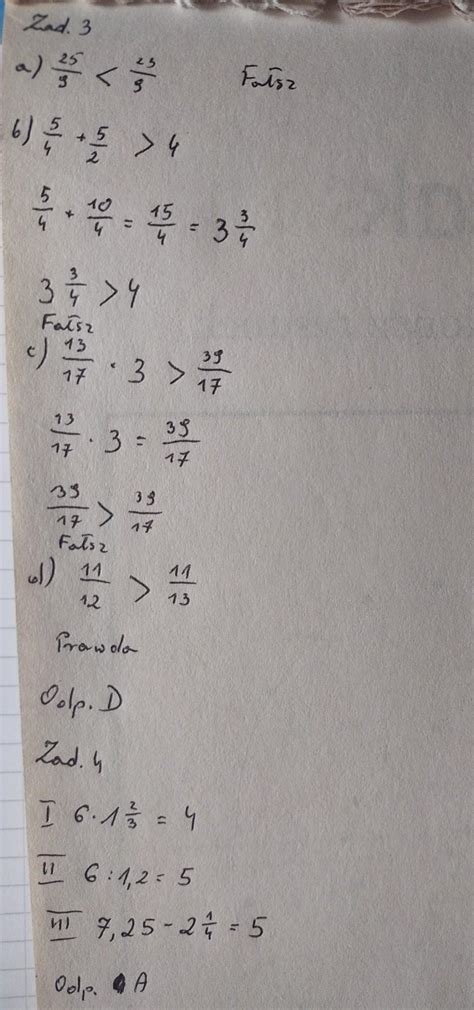 Zad. 3
a) 25/9 < 23/9 Fałsz
b) 5/4 + 5/2 > 4
5/4 + 10/4 = 15/4 = 3 3/4
3 3/4 > 4
Fałsz
c) 13/17 · 3 > 39/17
13/17 · 3 = 39/17
39/17 > 39/17
Fałsz
d) 11/12 > 11/13
Prawda
Odp. D
Zad. 4
I 6 · 1 2/3 = 4
II 6 : 1,2 = 5
III 7,25 - 2 1/4 = 5
Odp. A